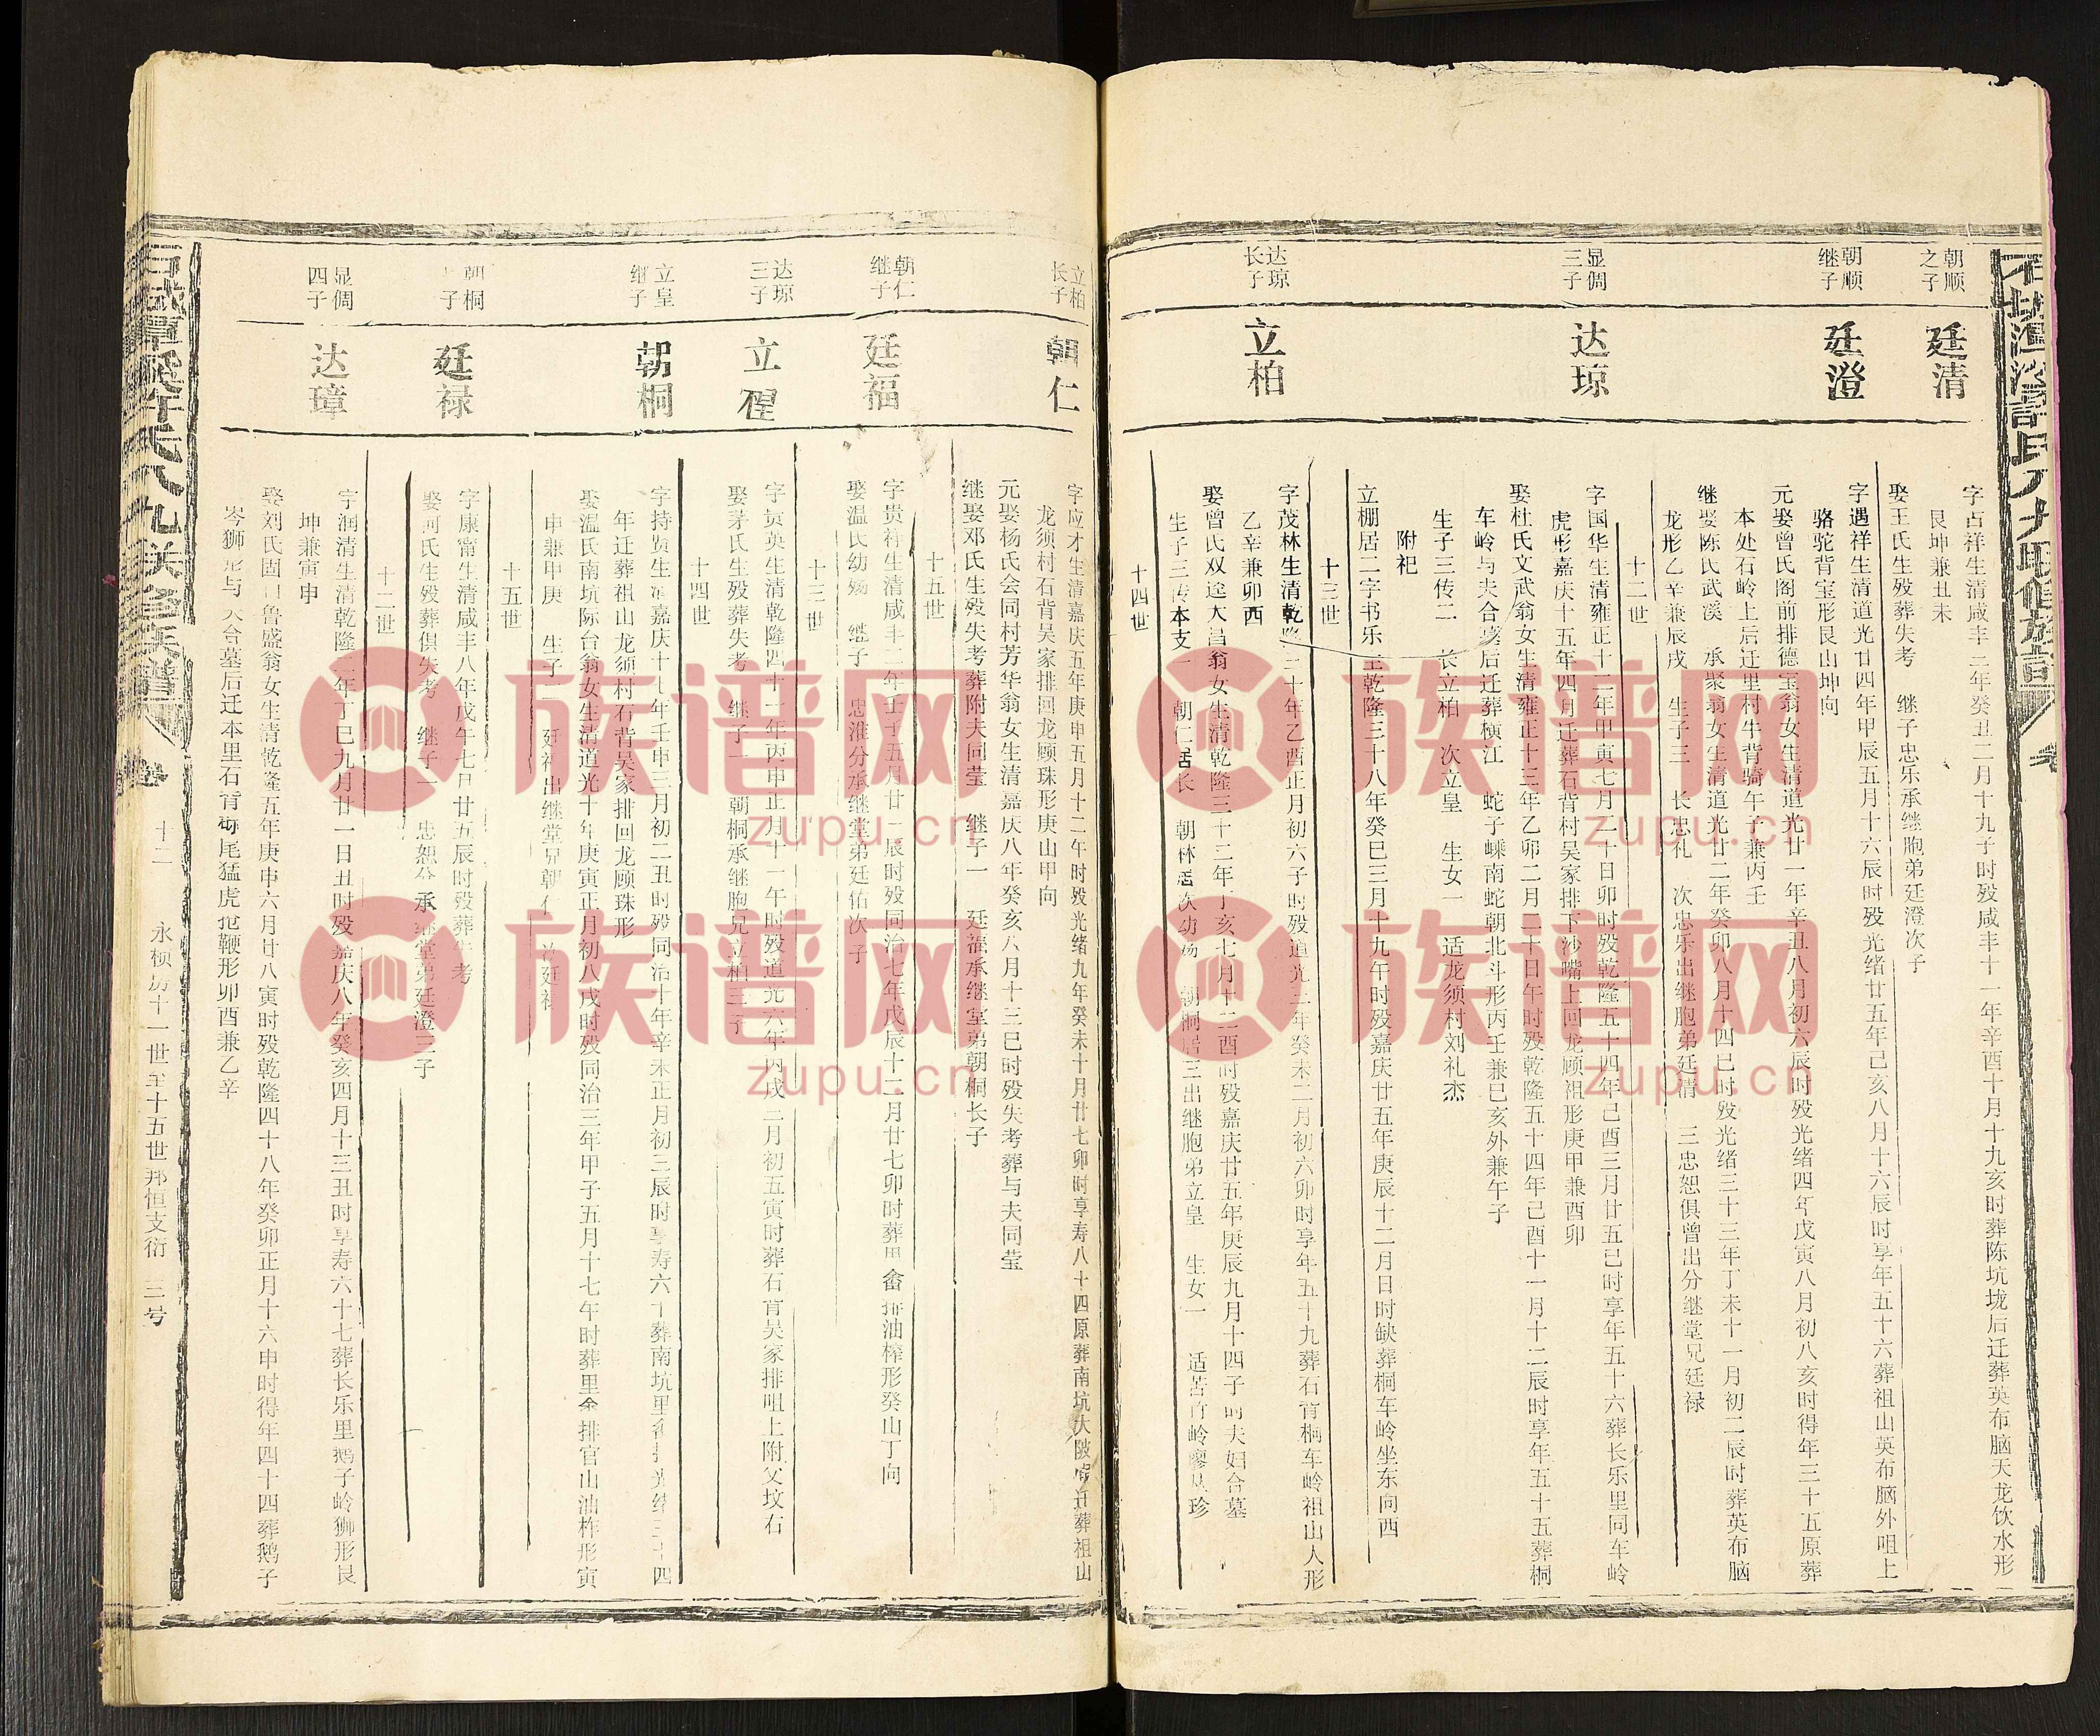 朝顺之子
廷清
字占祥生清咸丰三年癸丑二月十九子时殁咸丰十一年辛酉十月十九亥时葬陈坑垅后迁葬英布脑天龙饮水形
艮坤兼丑未
娶王氏生殁葬失考 继子忠乐承继胞弟廷澄次子
朝顺继子
廷澄
字遇祥生清道光廿四年甲辰五月十六辰时殁光绪廿五年己亥八月十六辰时享年五十六葬祖山英布脑外咀上
骆驼背宝形艮山坤向
元娶曾氏阁前排德宝翁女生清道光廿一年辛丑八月初六辰时殁光绪四年戊寅八月初八亥时得年三十五原葬
本处石岭上后迁里村牛背骑午子兼丙壬
继娶陈氏武溪 承聚翁女生清道光廿二年癸卯八月十四巳时殁光绪三十三年丁未十一月初二辰时葬英布脑
龙形乙辛兼辰戌 生子三 长忠礼 次忠乐出继胞弟廷清 三忠恕俱曾出分继堂兄廷禄
十二世
显倜三子
达琼
字国华生清雍正十二年甲寅七月二十日卯时殁乾隆五十四年己酉三月廿五巳时享年五十六葬长乐里同车岭
虎形嘉庆十五年四月迁葬石背村吴家排下沙嘴上回龙顾祖形庚甲兼酉卯
娶杜氏文武翁女生清雍正十三年乙卯二月二十日午时殁乾隆五十四年己酉十一月十二辰时享年五十五葬桐
车岭与夫合墓后迁葬横江 蛇子嵊南蛇朝北斗形丙壬兼巳亥外兼午子
生子三传二 长立柏 次立皇 生女一 适龙须村刘礼杰
附祀
立棚居二字书乐生乾隆三十八年癸巳三月十九午时殁嘉庆廿五年庚辰十二月日时缺葬桐车岭坐东向西
十三世
达琼长子
立柏
字茂林生清乾隆三十年乙酉正月初六子时殁道光三年癸未二月初六卯时享年五十九葬石背桐车岭祖山人形
乙辛兼卯酉
娶曾氏双逵大昌翁女生清乾隆三十二年丁亥七月十二酉时殁嘉庆廿五年庚辰九月十四子时夫妇合墓
生子三传本支一 朝仁居长 朝林居次幼殇 朝桐居三出继胞弟立皇 生女一 适苦竹岭廖 珍
十四世
立柏长子
朝仁
字应才生清嘉庆五年庚申五月十二午时殁光绪九年癸未十月廿七卯时享寿八十四原葬南坑大陂 迁葬祖山
龙须村石背吴家排回龙顾珠形庚山甲向
元娶杨氏会同村芳华翁女生清嘉庆八年癸亥六月十三巳时殁失考葬与夫同莹
继娶邓氏生殁失考葬附夫同莹 继子一 廷福承继堂弟朝桐长子
十五世
朝仁继子
廷福
字贵祥生清咸丰二年壬子五月廿二辰时殁同治七年戊辰十二月廿七卯时葬里畲排油榨形癸山丁向
娶温氏幼殇 继子 忠淮分承继堂弟廷佑次子
十三世
达琼三子
立皇
字贡英生清乾隆四十一年丙申正月十一午时殁道光六年丙戌三月初五寅时葬石背吴家排咀上附父坟右
娶茅氏生殁葬失考 继子一 朝桐承继胞兄立柏三子
十四世
立皇继子
朝桐
字持贤生清嘉庆十七年壬申三月初二丑时殁同治十年辛未正月初三辰时享寿六十葬南坑里 光绪三十四
年迁葬祖山龙须村石背吴家排回龙顾珠形
娶温氏南坑际台翁女生清道光十年庚寅正月初八戌时殁同治三年甲子五月十七午时葬里畲排官山油柞形寅
申兼甲庚 生子二 廷福出继堂兄朝仁 次廷禄
十五世
朝桐子
廷禄
字康甯生清咸丰八年戊午七月廿五辰时殁葬失考
娶何氏生殁葬俱失考 继子一 忠恕分承继堂弟廷澄三子
十二世
显倜四子
达璋
字润清生清乾隆二年丁巳九月廿一日丑时殁嘉庆八年癸亥四月十三丑时享寿六十七葬长乐里鹅子岭狮形艮
坤兼寅申
娶刘氏固口鲁盛翁女生清乾隆五年庚申六月廿八寅时殁乾隆四十八年癸卯正月十六申时得年四十四葬鹅子
岑狮形与夫合墓后迁本里石背狮尾猛虎 鞭形卯酉兼乙辛
十二 永桢房十一世至十五世邦恒支衍 三号
族谱网
zupu.cn
族谱网
zupu.cn
族谱网
zupu.cn
族谱网
zupu.cn